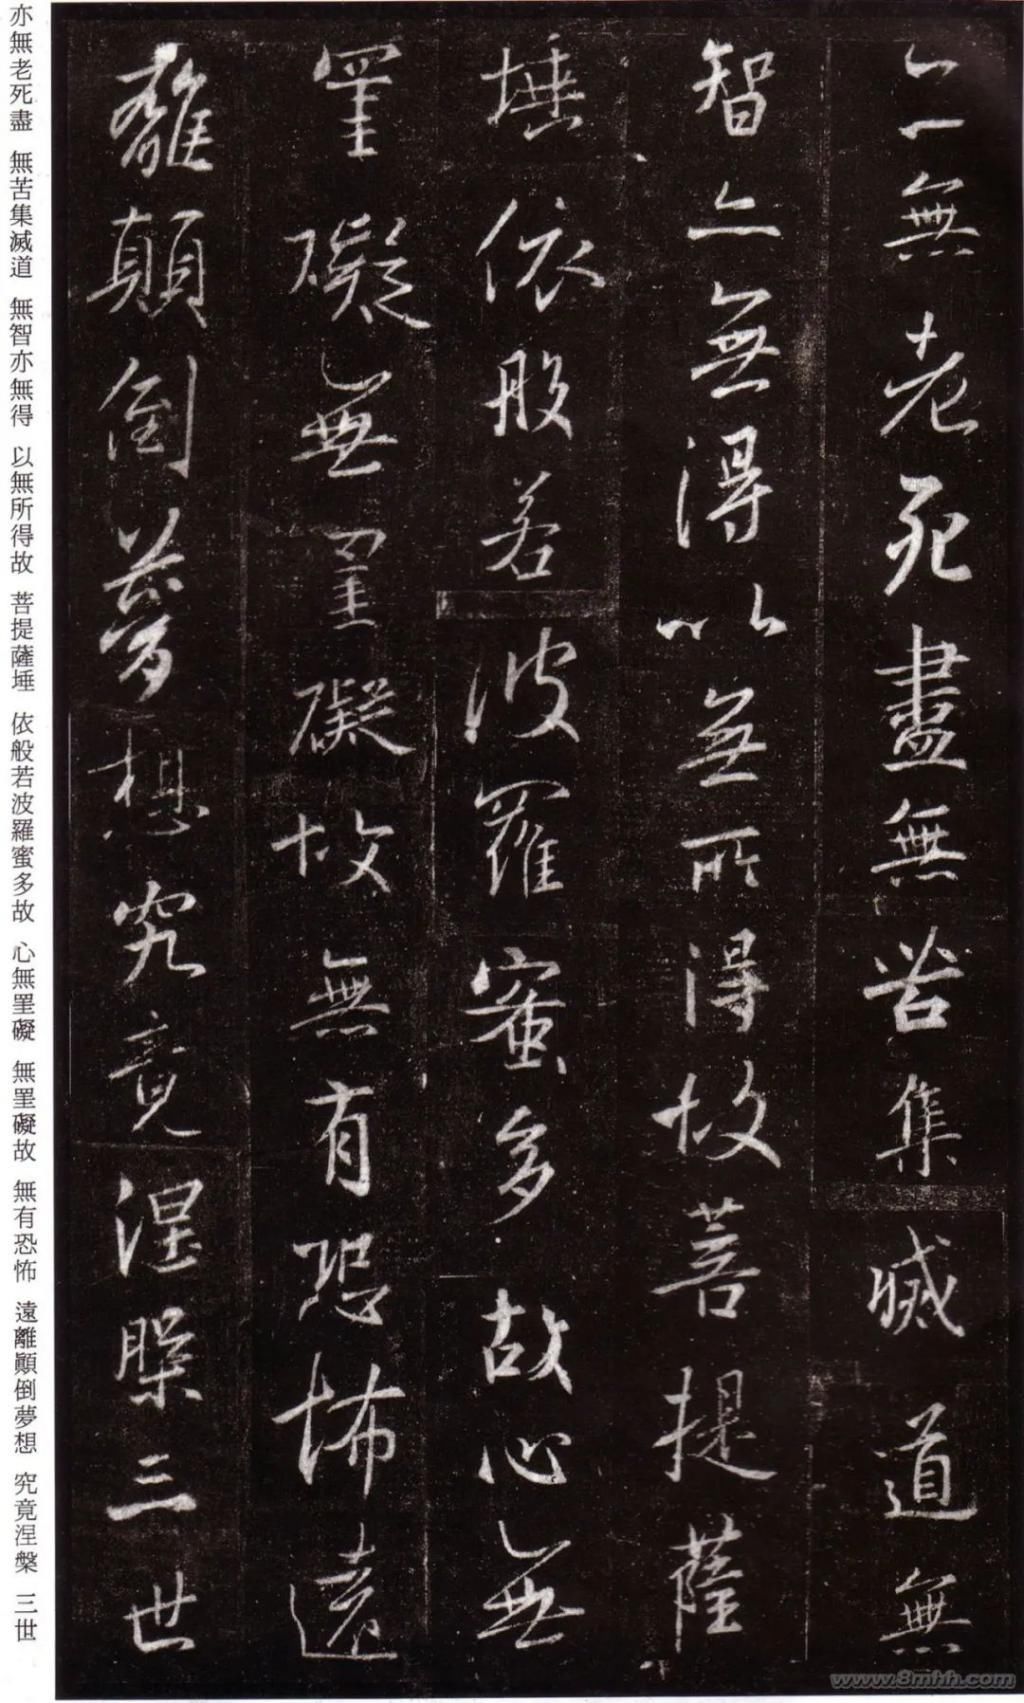 亦無老死盡無苦集滅道無
智亦無得以無所得故菩提薩
埵依般若波羅蜜多故心無
罣礙無罣礙故無有恐怖遠
離顛倒夢想究竟涅槃三世
亦無老死盡 無苦集滅道 無智亦無得 以無所得故 菩提薩埵 依般若波羅蜜多故 心無罣礙 無罣礙故 無有恐怖 遠離顛倒夢想 究竟涅槃 三世
www.8mhh.com